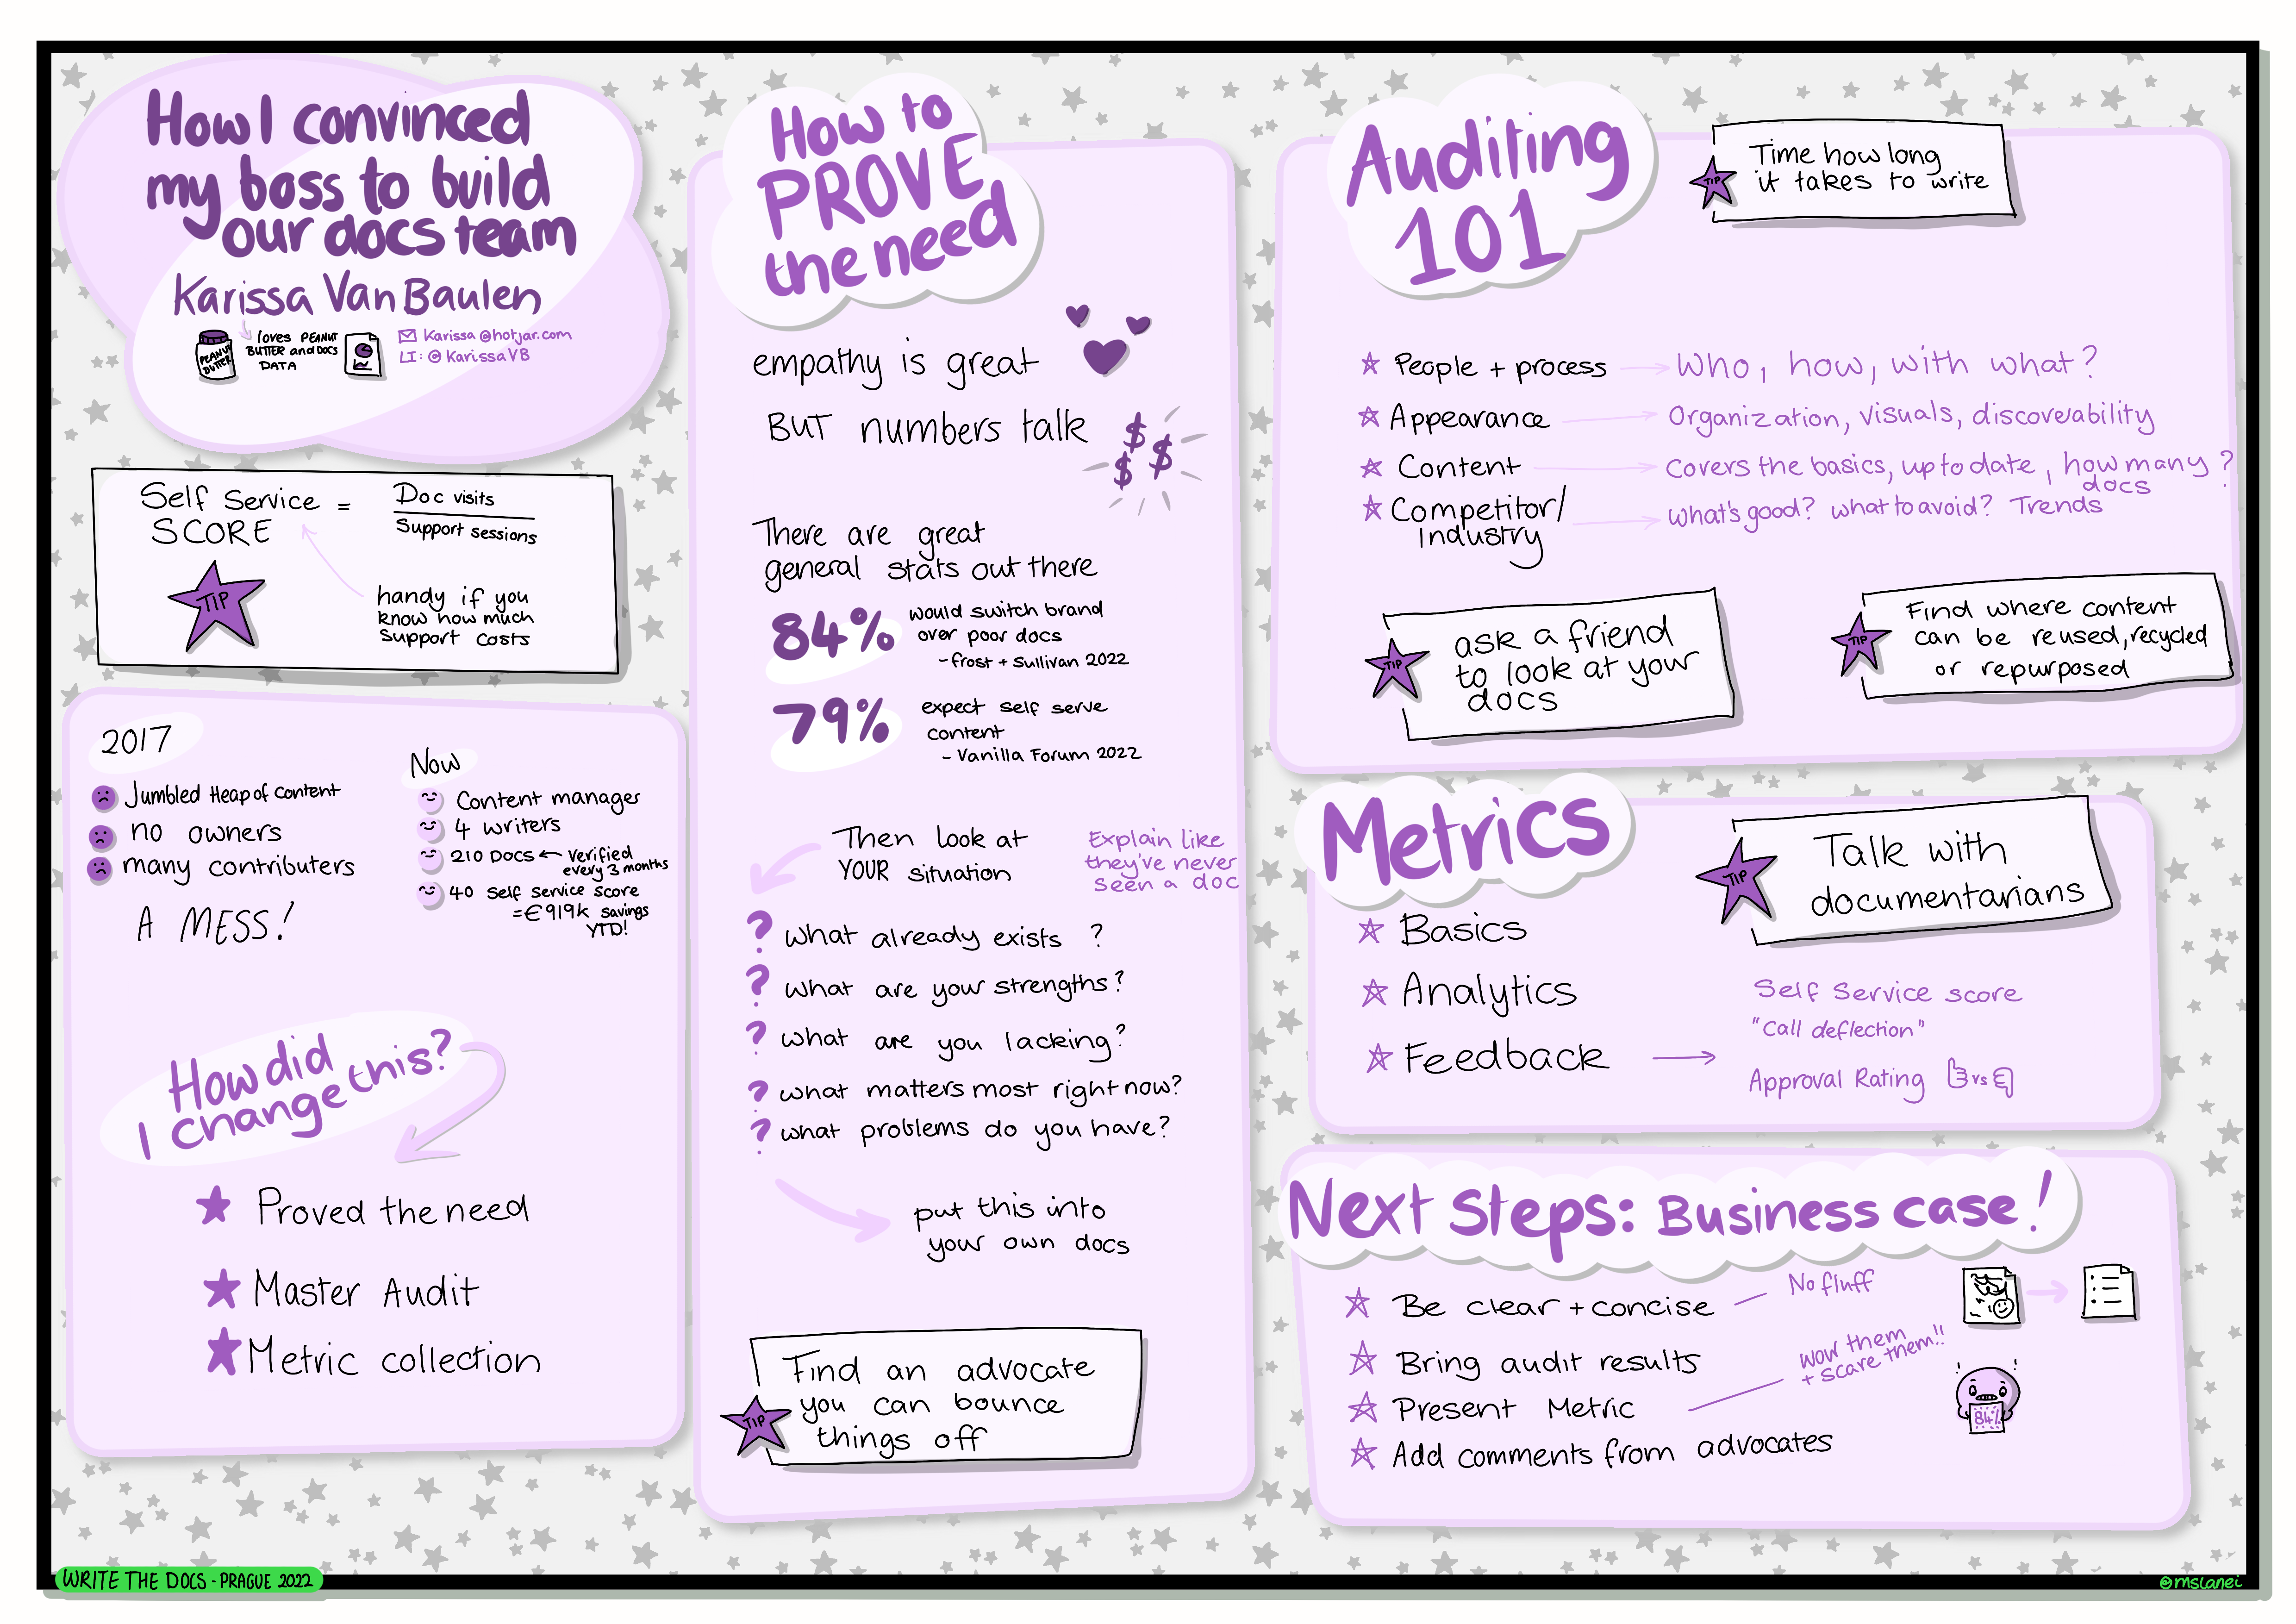 How I convinced
my boss to build
our docs team
Karissa Van Baulen
PEANUT
BUTTER
loves PEANUT
BUTTER and DOCS
DATA
Karissa @hotjar.com
LI: @KarissaVB
Self Service
SCORE
=
Doc visits
Support sessions
TIP
handy if you
know how much
support costs
2017
Jumbled Heap of Content
no owners
many contributers
A MESS!
Now
Content manager
4 writers
210 DOCS ← verified
every 3 months
40 self service score
= €919k savings
YTD!
How did
I change this?
Proved the need
Master Audit
Metric collection
How to
PROVE
the need
empathy is great
BUT numbers talk
$ $ $
There are great
general stats out there
84%
would switch brand
over poor docs
- frost + Sullivan 2022
79%
expect self serve
content
- Vanilla Forum 2022
Then look at
YOUR situation
Explain like
they've never
seen a doc
? What already exists ?
? What are your strengths?
? what are you lacking?
? what matters most right now?
? what problems do you have?
put this into
your own docs
TIP
Find an advocate
you can bounce
things off
Auditing
101
TIP
Time how long
it takes to write
People + process → Who, how, with what?
Appearance → Organization, visuals, discoverability
Content → covers the basics, up to date, how many ?
docs
Competitor/
Industry
→ what's good? what to avoid? Trends
TIP
ask a friend
to look at your
docs
TIP
Find where content
can be reused, recycled
or repurposed
Metrics
TIP
Talk with
documentarians
Basics
Analytics
Feedback →
Self Service score
"Call deflection"
Approval Rating vs
Next Steps: Business case!
Be clear + concise – No fluff
Bring audit results
Present Metric – wow them
+ scare them!!
Add comments from advocates
! !
84%
WRITE THE DOCS - PRAGUE 2022
@mslanei